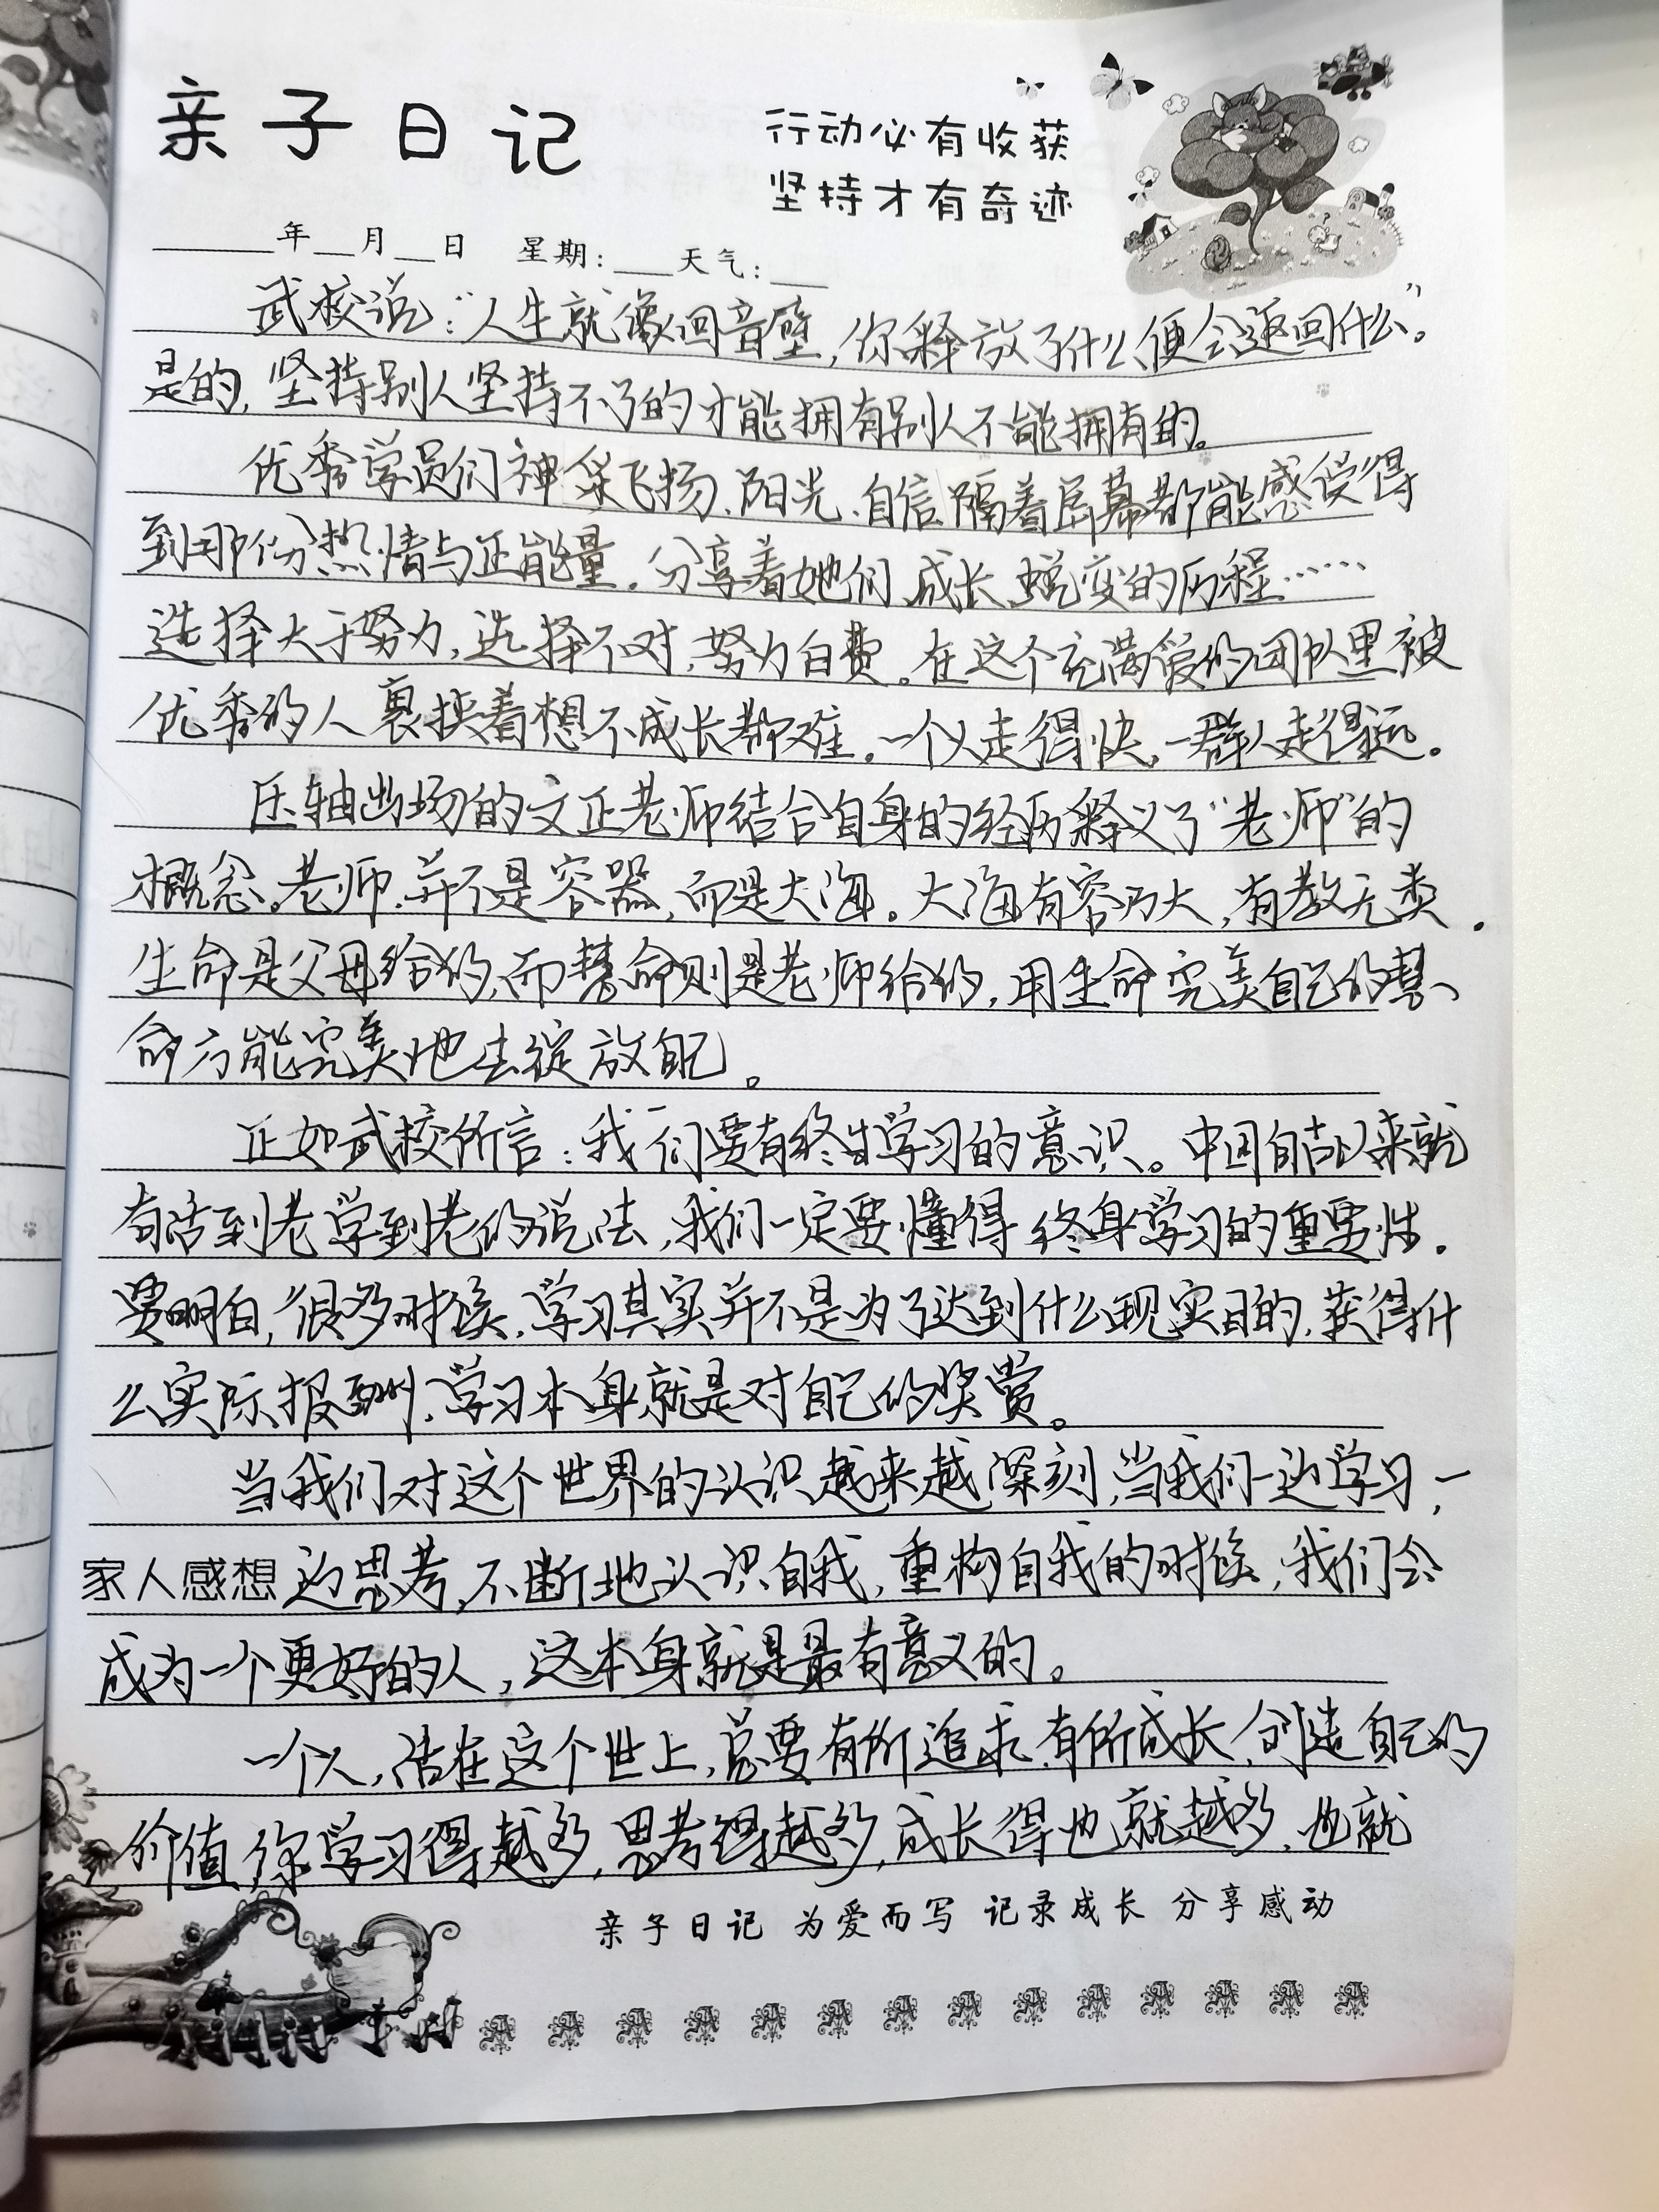 亲子日记
行动必有收获
坚持才有奇迹
年 月 日 星期: 天气:
武校说:“人生就像回音壁,你释放了什么便会返回什么”。
是的,坚持别人坚持不了的才能拥有别人不能拥有的。
优秀学员们神采飞扬、阳光、自信隔着屏幕都能感受得
到那份热情与正能量。分享着她们成长蜕变的历程……
选择大于努力,选择不对,努力白费。在这个充满爱的团队里被
优秀的人裹挟着想不成长都难。一个人走得快,一群人走得远。
压轴出场的文正老师结合自身的经历释义了“老师”的
概念。老师,并不是容器,而是大海。大海有容乃大,有教无类。
生命是父母给的,而慧命则是老师给的,用生命完美自己的慧
命方能完美地去绽放自己。
正如武校所言:我们要有终生学习的意识。中国自古以来就
有活到老学到老的说法,我们一定要懂得终身学习的重要性。
要明白,很多时候,学习其实并不是为了达到什么现实目的,获得什
么实际报酬,学习本身就是对自己的奖赏。
当我们对这个世界的认识越来越深刻,当我们一边学习,一
家人感想 边思考,不断地认识自我,重构自我的时候,我们会
成为一个更好的人,这本身就是最有意义的。
一个人,活在这个世上,总要有所追求,有所成长,创造自己的
价值,你学习得越多,思考得越多,成长得也就越多,也就
亲子日记 为爱而写 记录成长 分享感动